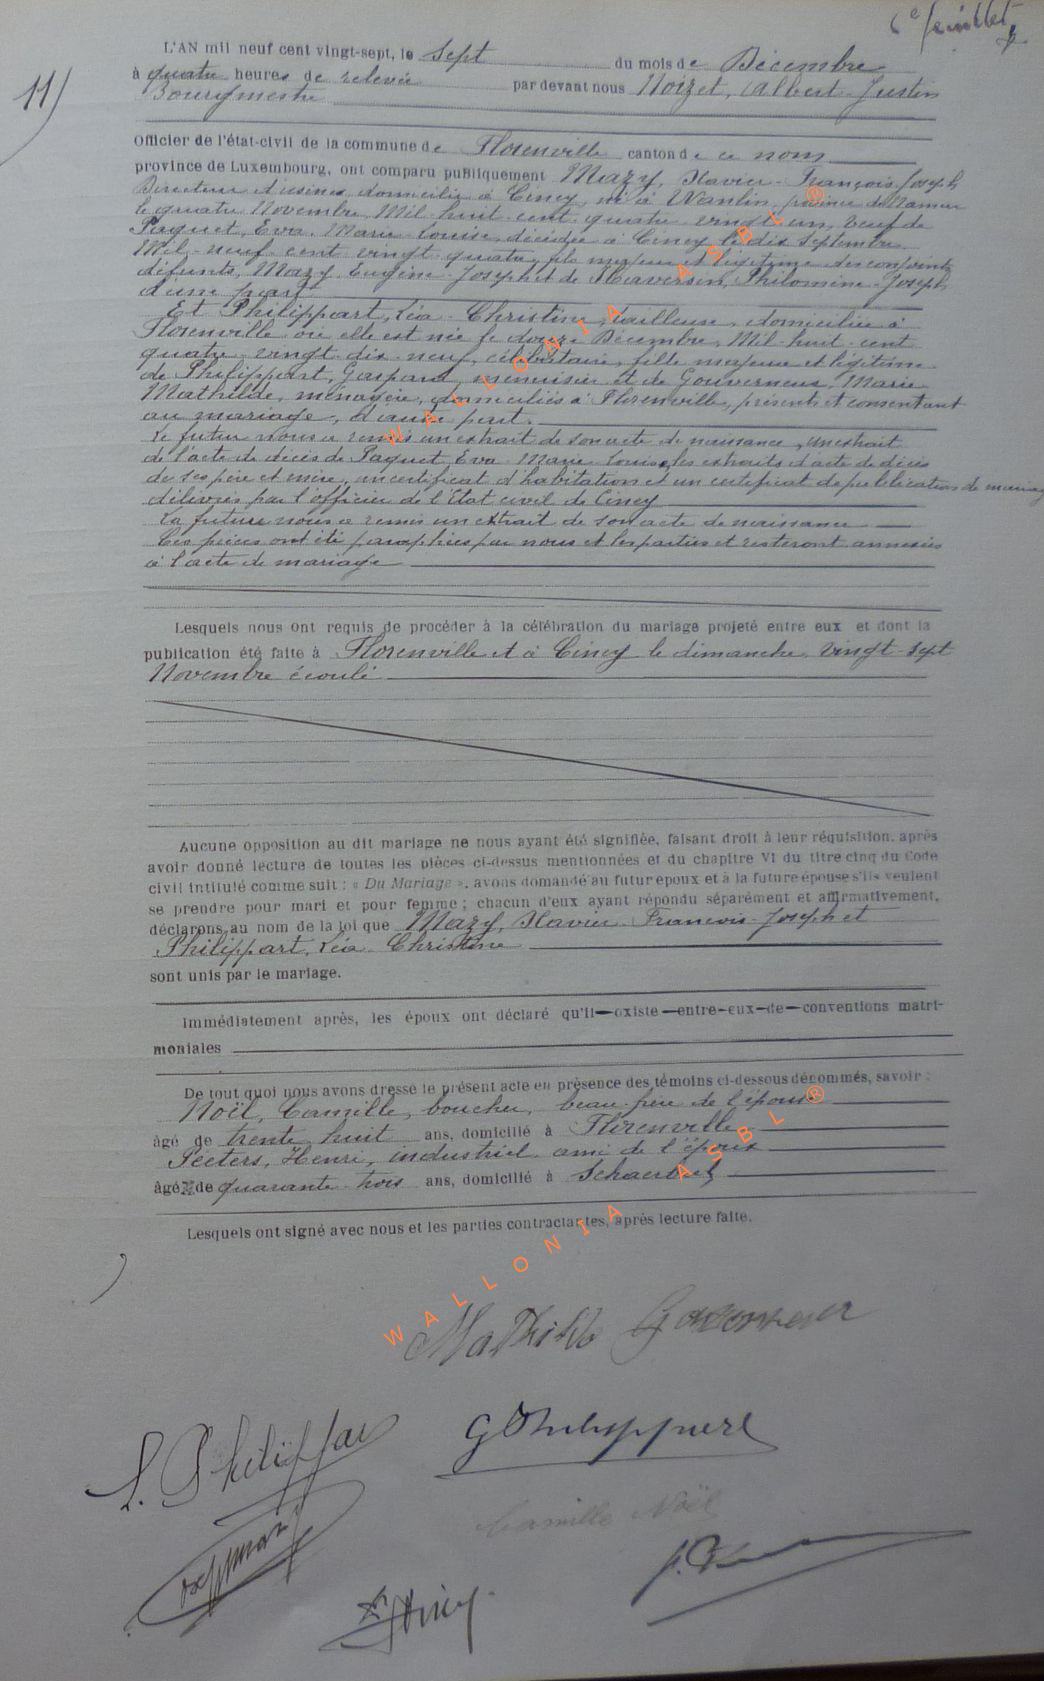 6e feuillet
11)
L'AN mil neuf cent vingt-sept, le sept du mois de Décembre
à quatre heures de relevée par devant nous Noizet, Albert-Justin
Bourgmestre
Officier de l'état-civil de la commune de Florenville canton de ce nom
province de Luxembourg, ont comparu publiquement Mazy, Xavier-François-Joseph
Directeur d'usines, domicilié à Ciney, né à Wanlin, province de Namur
le quatre Novembre, Mil-huit-cent quatre vingt un, veuf de
Paquet, Eva-Marie-Louise, décédée à Ciney le dix Septembre
Mil-neuf-cent vingt quatre, fils majeur et légitime des conjoints
défunts, Mazy Eugène-Joseph et de Haversin, Philomène-Joseph
d'une part
Et Philippart, Léa-Christine, tailleuse, domiciliée à
Florenville où elle est née le douze Décembre, Mil-huit-cent
quatre-vingt-dix-neuf, célibataire, fille majeure et légitime
de Philippart, Gaspard, menuisier et de Gouverneur, Marie
Mathilde, ménagère, domiciliés à Florenville, présents et consentant
au mariage, d'autre part.
Le futur nous a remis un extrait de son acte de naissance, un extrait
de l'acte de décès de Paquet, Eva-Marie-Louise, les extraits d'acte de décès
de ses père et mère, un certificat d'habitation et un certificat de publication de mariage
délivrés par l'officier de l'Etat civil de Ciney
La future nous a remis un extrait de son acte de naissance
Ces pièces ont été paraphées par nous et les parties et resteront annexées
à l'acte de mariage
Lesquels nous ont requis de procéder à la célébration du mariage projeté entre eux et dont la
publication été faite à Florenville et à Ciney le dimanche vingt-sept
Novembre écoulé
Aucune opposition au dit mariage ne nous ayant été signifiée, faisant droit à leur réquisition, après
avoir donné lecture de toutes les pièces ci-dessus mentionnées et du chapitre VI du titre cinq du Code
civil intitulé comme suit : « Du Mariage », avons demandé au futur époux et à la future épouse s'ils veulent
se prendre pour mari et pour femme ; chacun d'eux ayant répondu séparément et affirmativement,
déclarons au nom de la loi que Mazy, Xavier-François-Joseph et
Philippart, Léa-Christine
sont unis par le mariage.
Immédiatement après, les époux ont déclaré qu'il existe entre eux de conventions matri-
moniales
De tout quoi nous avons dressé le présent acte en présence des témoins ci-dessous dénommés, savoir :
Noël, Camille, boucher, beau-frère de l'épouse
âgé de trente huit ans, domicilié à Florenville
Peeters, Henri, industriel ami de l'époux
âgé de quarante-trois ans, domicilié à Schaerbeek
Lesquels ont signé avec nous et les parties contractantes, après lecture faite.
Mathilde Gouverneur
L. Philippart
G Philippart
Camille Noël
WALLONIA ASBL ®
WALLONIA ASBL ®